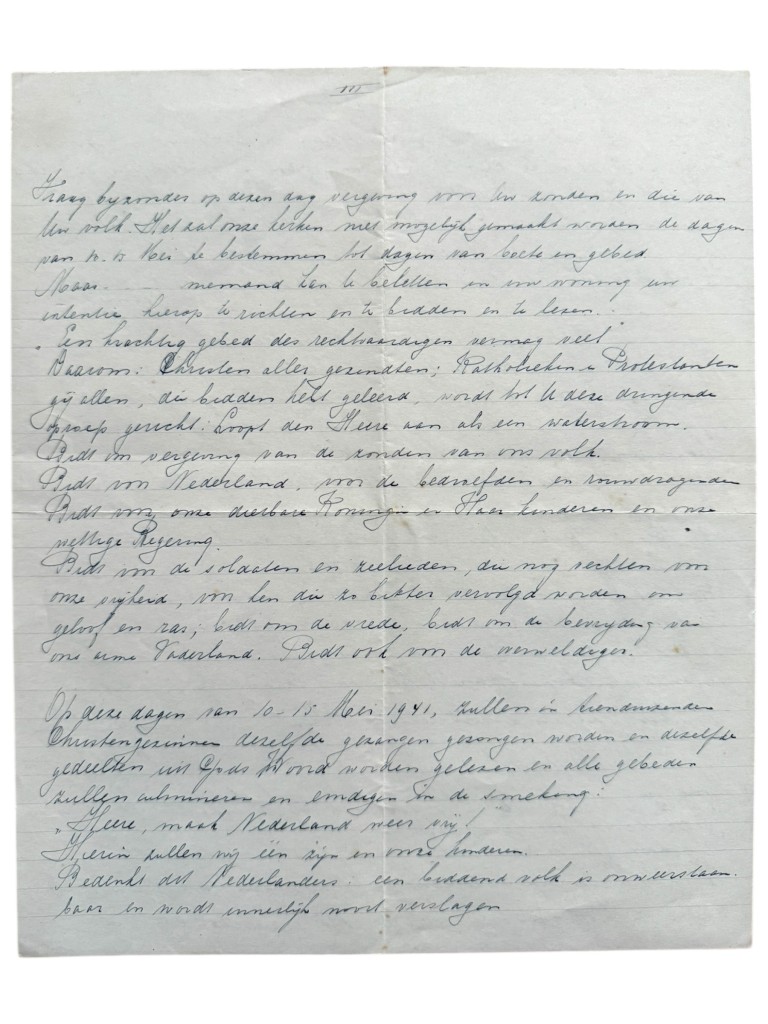 III
Vraag byzonder op dezen dag vergeving voor Uw zonden en die van
Uw volk. Het zal onze kerken niet mogelijk gemaakt worden de dagen
van 10-15 Mei te bestemmen tot dagen van boete en gebed
Maar ...... niemand kan U beletten en uw woning uw
intentie, hierop te richten en te bidden en te lezen.
„Een krachtig gebed des rechtvaardigen vermag veel"
Daarom: Christen aller gezindten; Katholieken en Protestanten
gij allen, die bidden hebt geleerd, wordt tot U deze dringende
oproep gericht: Loopt den Heere aan als een waterstroom.
Bidt om vergeving van de zonden van ons volk.
Bidt voor Nederland, voor de bedroefden en rouwdragenden
Bidt voor onze dierbare Koningin en Haar kinderen en onze
wettige Regering.
Bidt voor de soldaten en zeelieden, die nog vechten voor
onze vrijheid, voor hen die zo bitter vervolgd worden om
geloof en ras; bidt om de vrede, bidt om de bevryding van
ons arme Vaderland. Bidt ook voor de overweldiger.
Op deze dagen van 10-15 Mei 1941, zullen in tienduizenden
Christengezinnen dezelfde gezangen gezongen worden en dezelfde
gedeelten uit Gods Woord worden gelezen en alle gebeden
zullen culmineren en eindigen in de smeking:
„Heere, maak Nederland weer vrij!"
Hierin zullen wij één zijn en onze kinderen.
Bedenkt dit Nederlanders: een biddend volk is onweerstaan-
baar en wordt innerlijk nooit verslagen